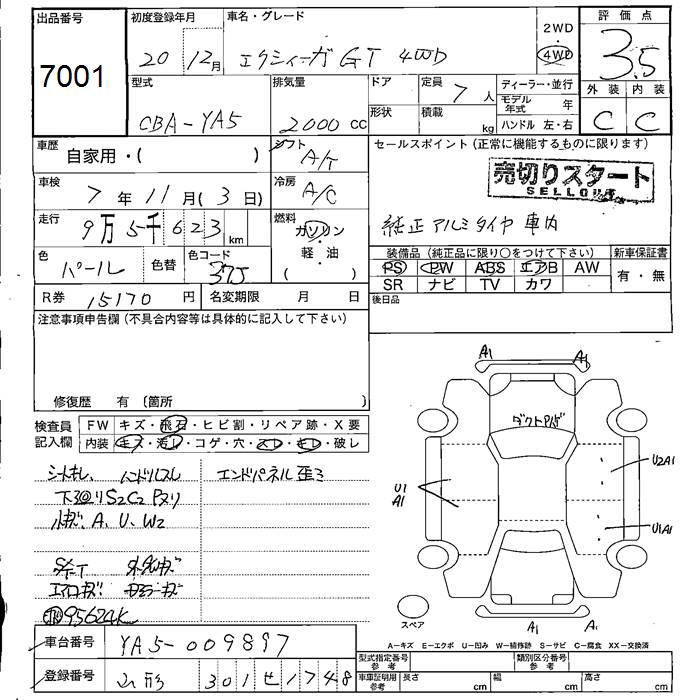 出品番号
7001
初度登録年月
20 12月
車名・グレード
エクシィーガ GT 4WD
2WD
4WD
評価点
3.5
外装 内装
C C
型式
CBA-YA5
排気量
2000 cc
ドア
形状
定員
7 人
積載
kg
ディーラー・並行
モデル年式 年
ハンドル 左・右
車歴
自家用・( )
シフト
A/T
車検
7年 11月 (3日)
冷房
A/C
走行
9万5千623 km
燃料
ガソリン
・
軽・油
( )
色
パール
色替
色コード
37J
R券 15170 円
名変期限 月 日
セールスポイント (正常に機能するものに限ります)
売切りスタート
SELLOUT
純正アルミタイヤ 車内
装備品 (純正品に限り○をつけて下さい)
PS PW ABS エアB AW
SR ナビ TV カワ
新車保証書
有・無
後日品
注意事項申告欄 (不具合内容等は具体的に記入して下さい)
修復歴 有 (箇所 )
検査員記入欄
FW キズ・飛石・ヒビ割・リペア跡・X要
内装 キズ・汚レ・コゲ・穴・スレ・キレ・破レ
シートキレ、ハンドルスレ
エンドパネル歪ミ
下廻りS2C2 Pヌリ
小キズ A、U、W2
エアロキズ
95624K
A1
A1
U1
A1
U2A1
U1A1
A1
A1
スペア
A=キズ E=エクボ U=凹み W=補修跡 S=サビ C=腐食 XX=交換済
車台番号
YA5-009897
登録番号
山形 301 せ 1748
型式指定番号 参考
類別区分番号 参考
車庫証明用 参考
長さ cm
幅 cm
高さ cm